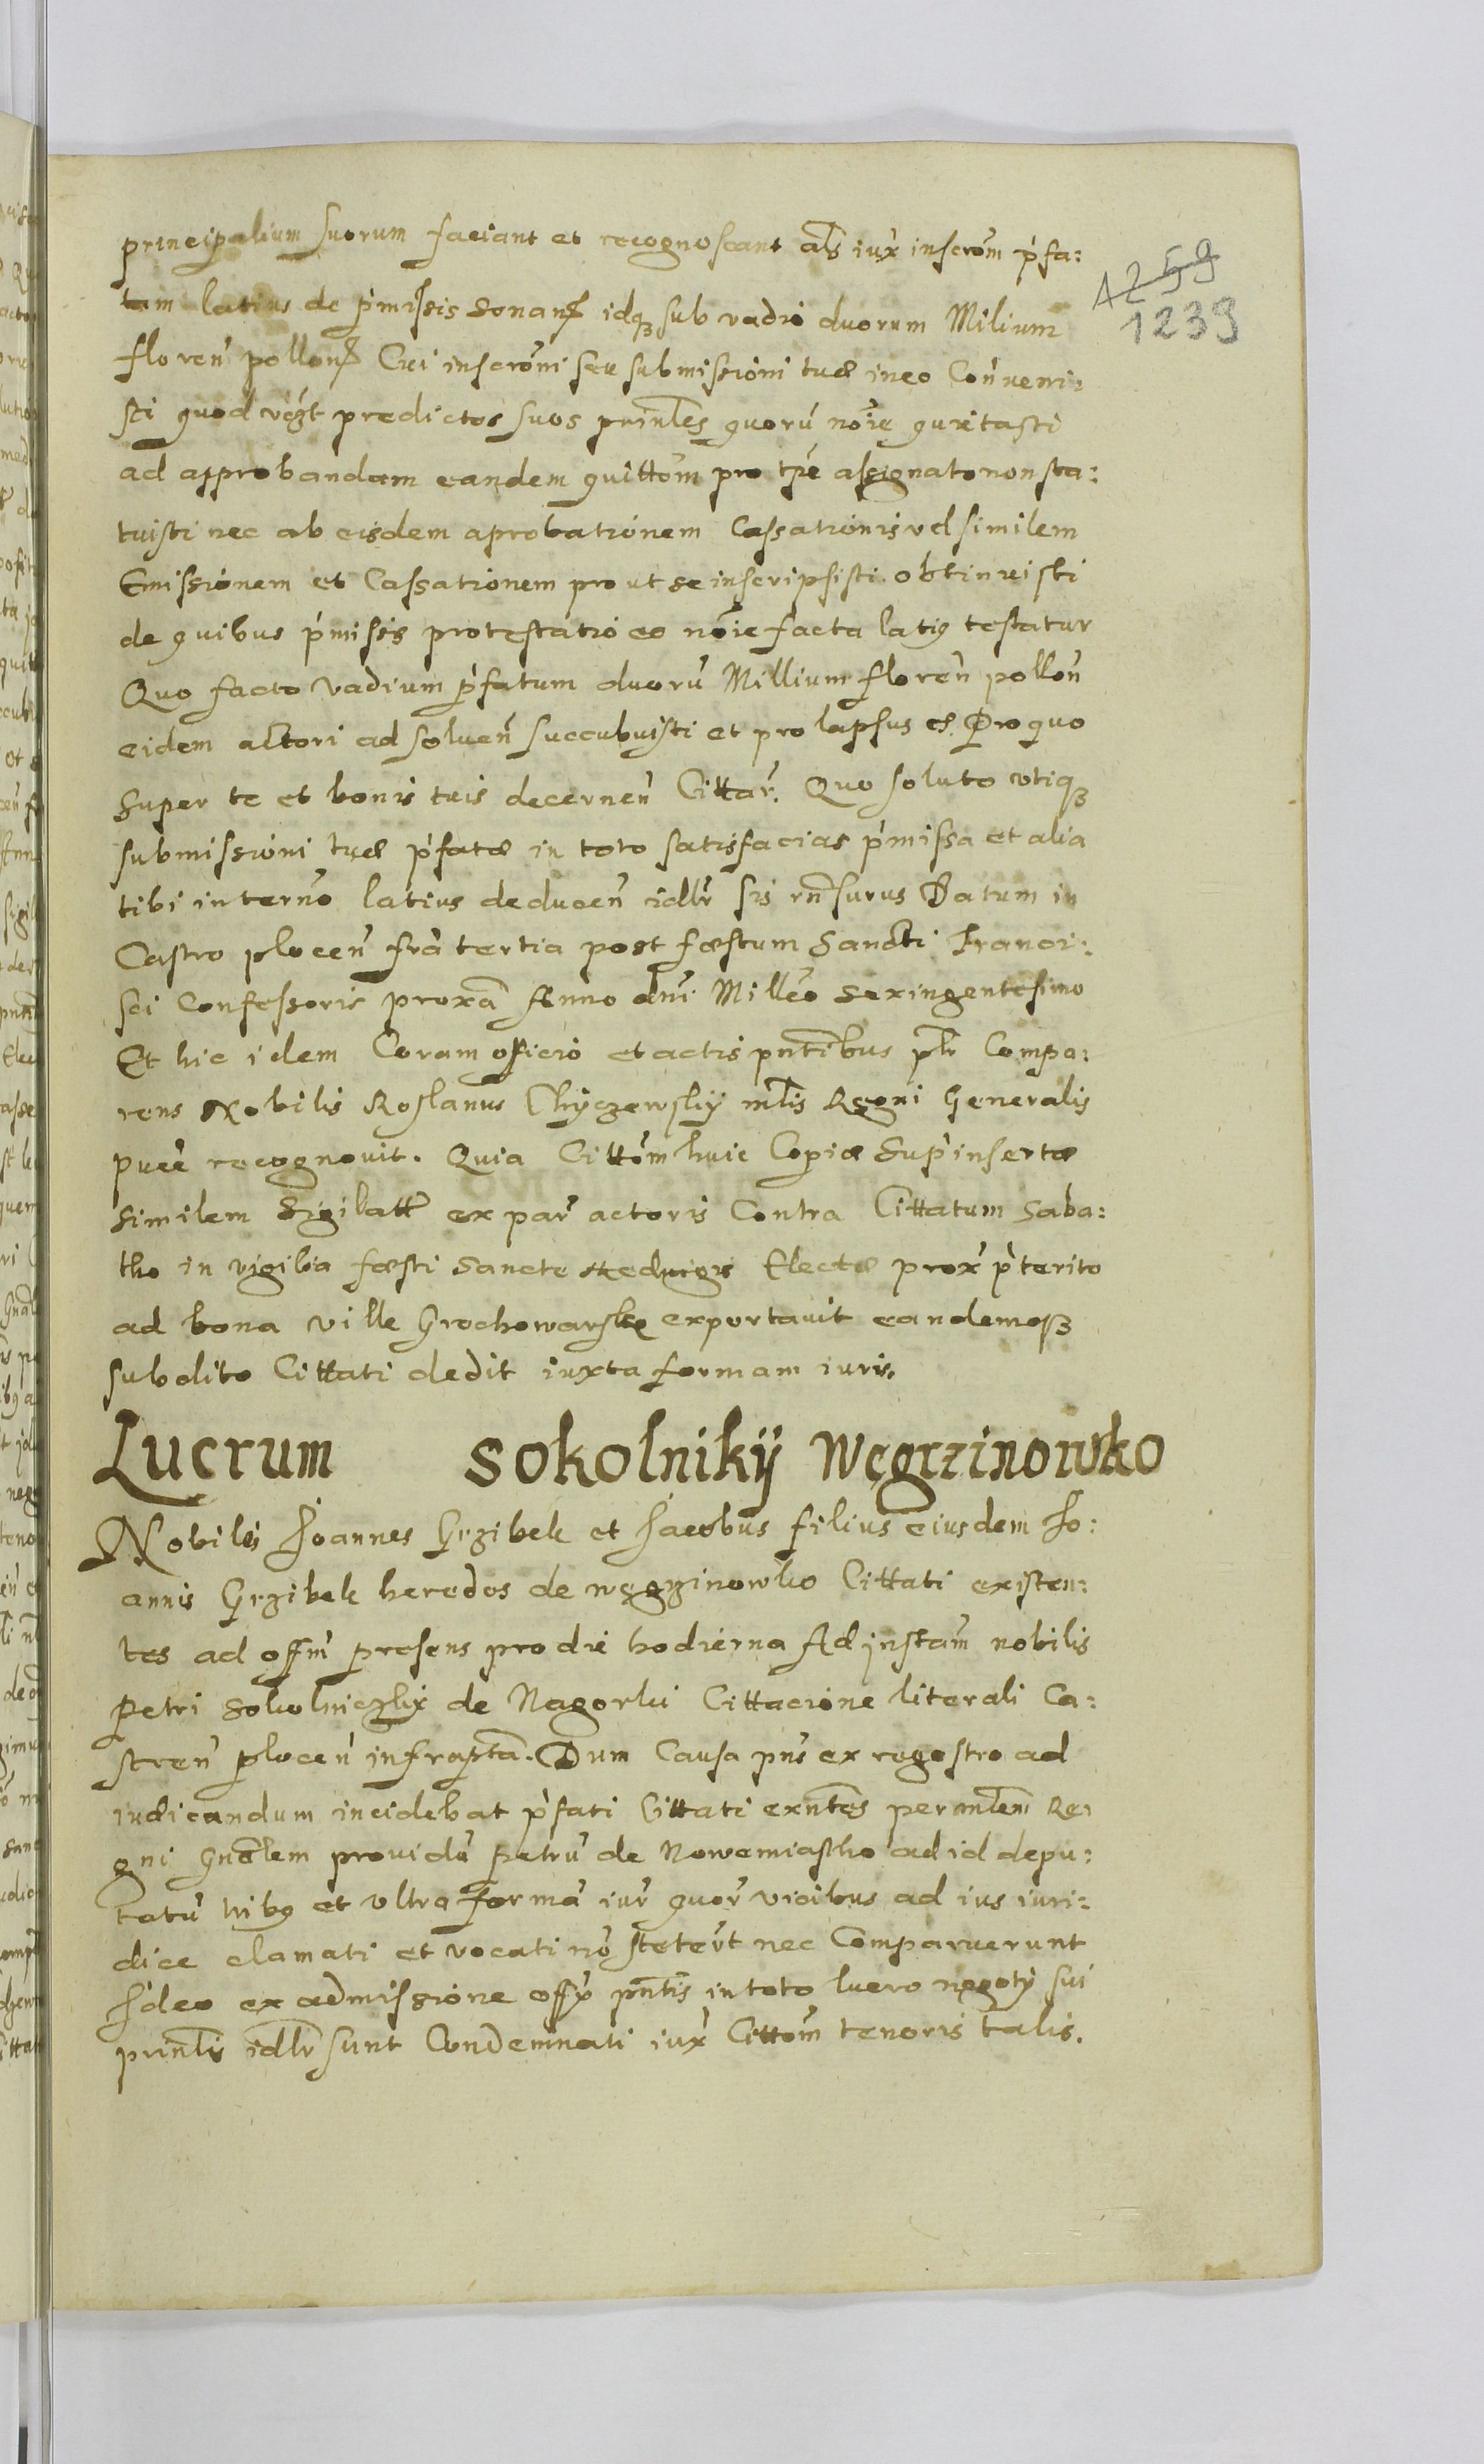 principalium suorum faciant et recognoscant als iux inscrom pfa:
1259
tam latius de pmissis sonan idqз sub vadio duorum Milium
1239
floren pollon Cui inscroni seu submissioni tuæ ineo Conveni:
sti quod predictos suos prinles quorū noie quitasti
ad approbandam eandem quittom pro tpe assignato non sta:
tuisti nec ab eisdem aprobationem Cassationis vel similem
Emissionem et Cassationem pro ut se inscripsisti obtinuisti
de quibus pmissis protestatio eo noie facta latig testatur
Quo facto vadium pfatum duorū Millium floren pollon
eidem actori ad soluen succubuisti et pro lapsus es. Pro quo
super te et bonis tuis decernen Cittar. Quo soluto vtiqз
submissioni tuæ pfatæ in toto satisfacias pmissa et alia
tibi in termo latius deducen idlr sis rnsurus Datum in
Castro plocen fra tertia post fæstum Sancti Franci:
sci Confessoris proxa Anno dni Milleo sexingentesimo
Et hic idem Coram officio et actis pntibus plr Compa:
rens Nobilis Roslanus Chyczewskÿ mlis Regni Generalis
puce recognouit. Quia Cittom huic Copiæ Supinsertæ
similem Sigilatt ex par actoris Contra Cittatum Saba:
tho in vigilia fæsti Sancte Heduigis Electæ prox pterito
ad bona ville Grochowarske exportauit eandemqз
subdito Cittati dedit iuxta formam iuris.
Lucrum Sokolnikÿ Węgrzinowko
Nobiles Joannes Grzibek et Jacobus filius eiusdem Jo:
annis Grzibek heredes de węgrzinowko Cittati existen:
tes ad offm presens pro die hodierna Ad instam nobilis
Petri Sokolniczkÿ de Nagorki Cittacione literali Ca:
stren plocen infraptā. Dum Causa pns ex regestro ad
iudicandum incidebat pfati Cittati exntes per mlem Re:
gni Gnalem prouidū Petrū de Nowemiastho ad id depu:
tatū tribg et vltra formā iur quor vicibus ad ius iuri:
dice clamati et vocati nō stetert nec Comparuerunt
Ideo ex admissione offÿ pntis in toto lucro negotÿ sui
prinlis idlr sunt Condemnati iux Cittom tenoris talis.